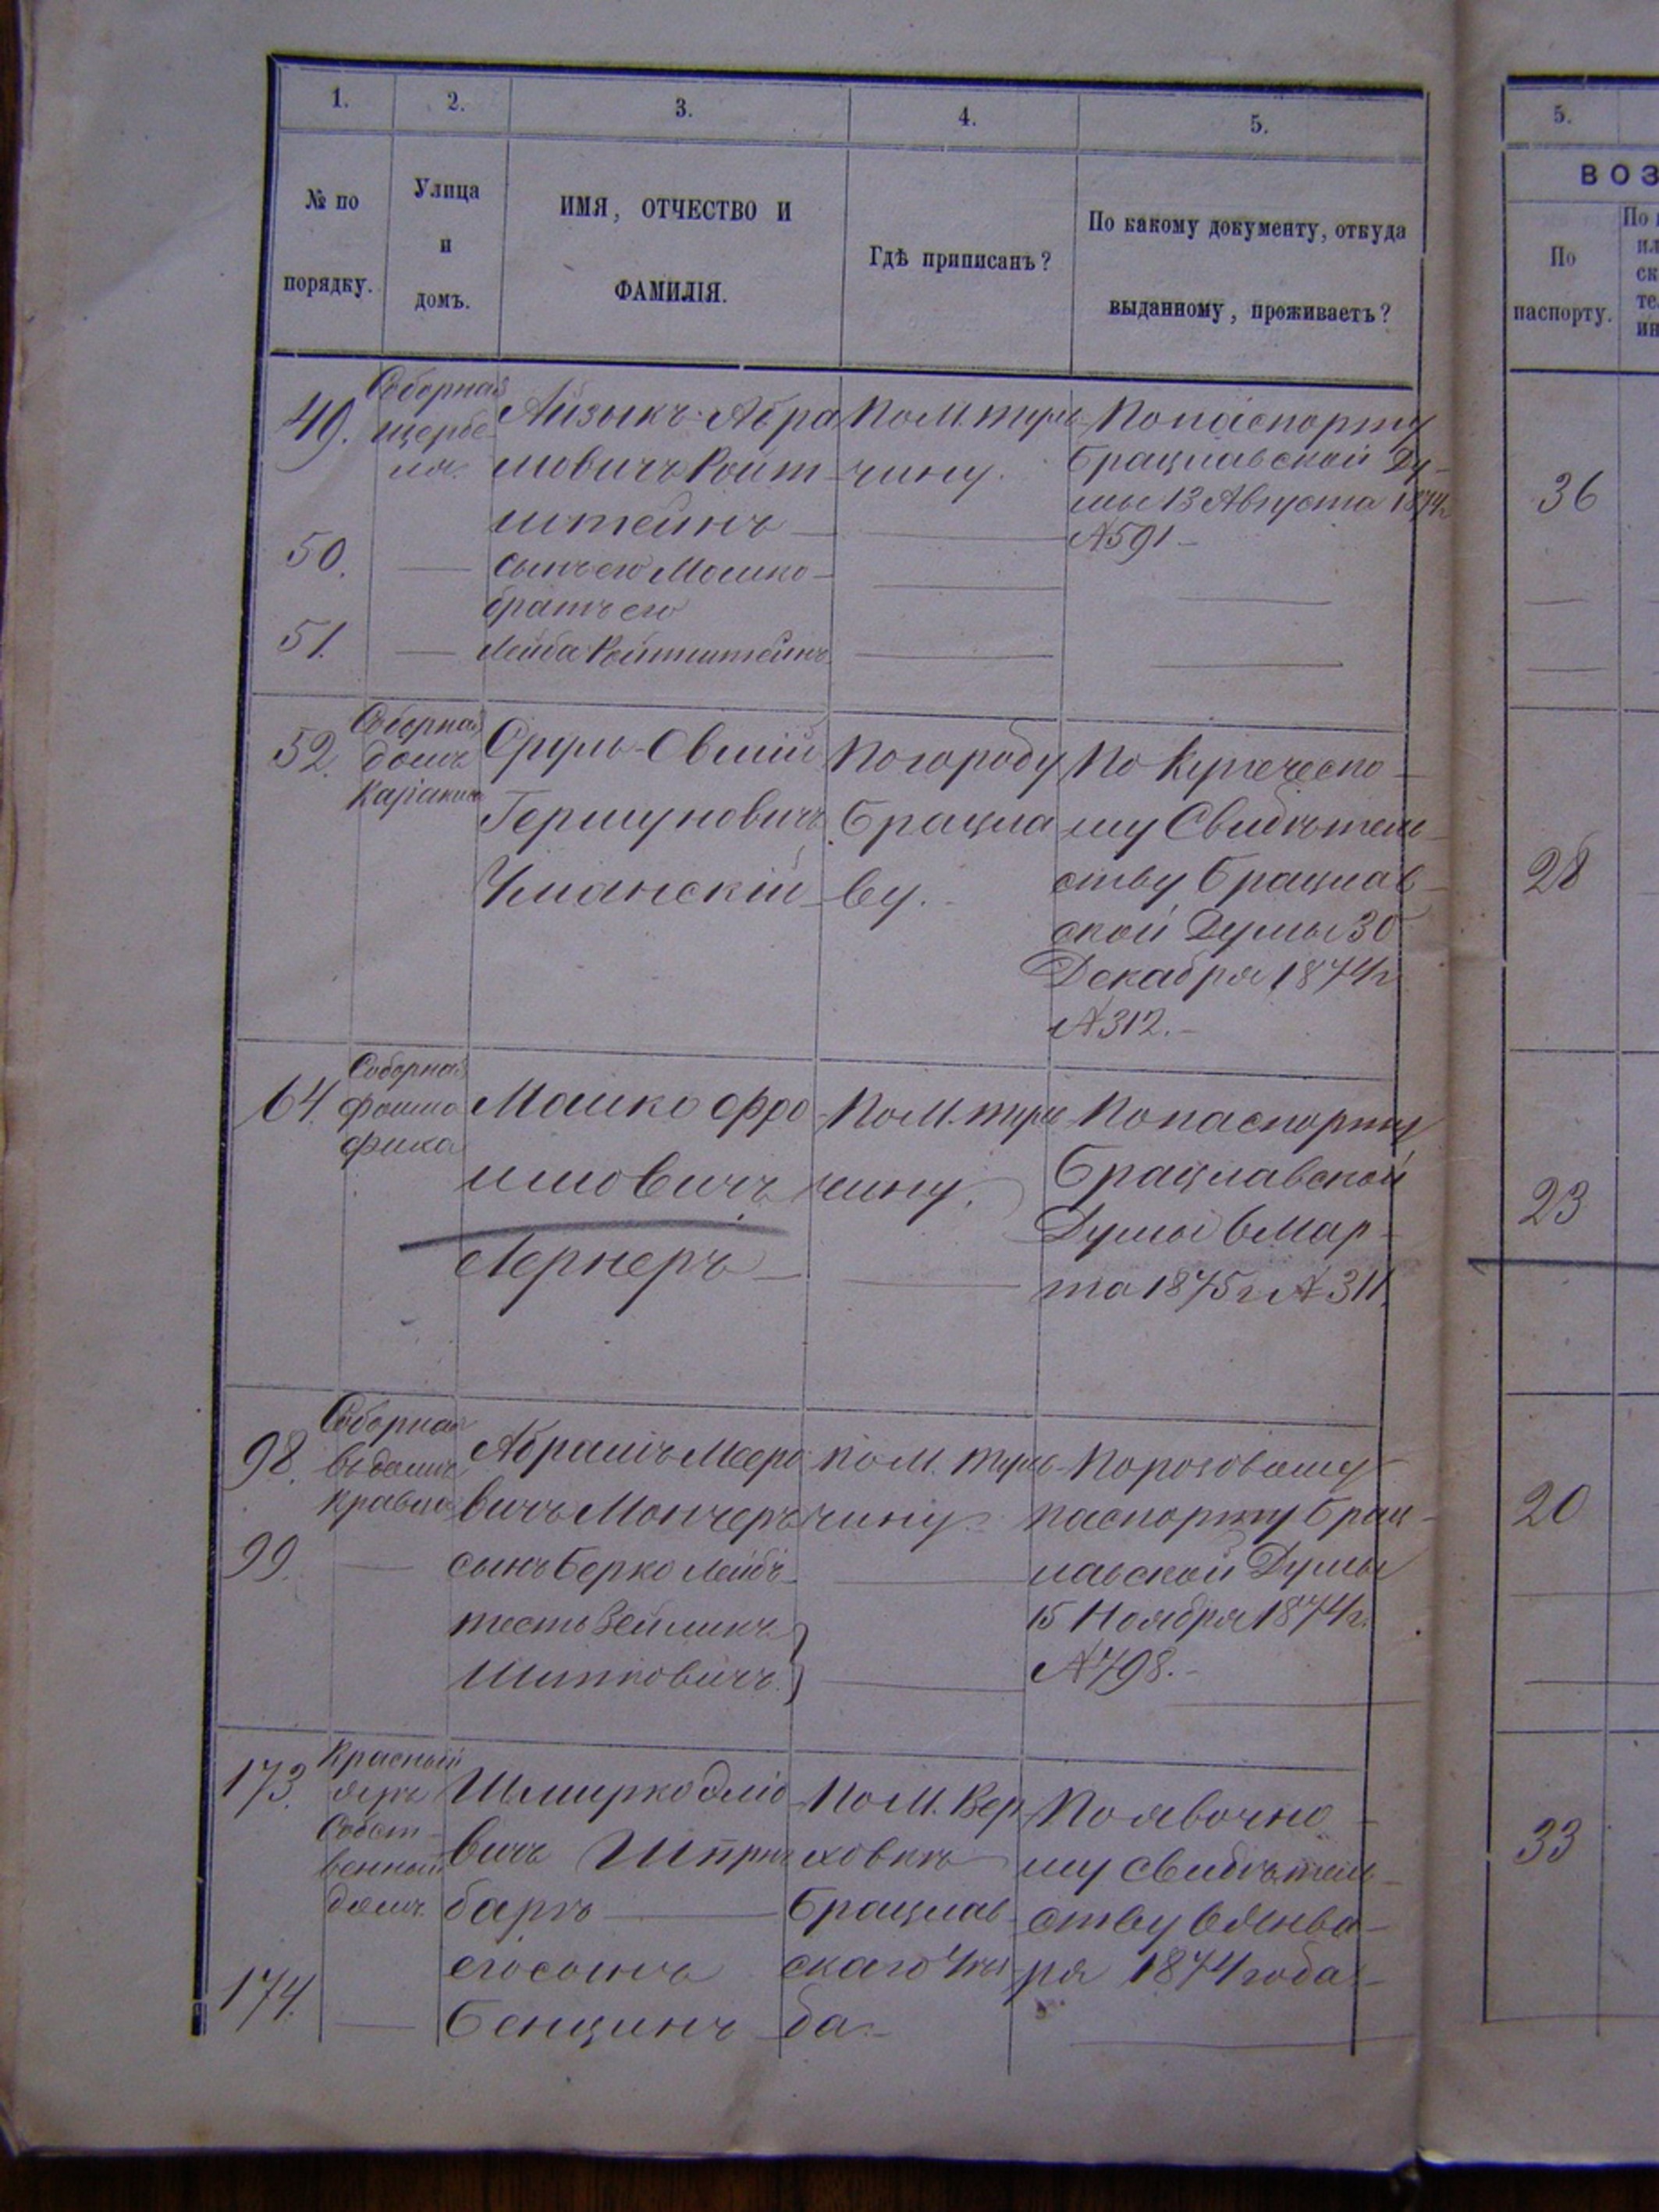 1. 2. 3. 4. 5.
№ по порядку.
Улица и домъ.
ИМЯ, ОТЧЕСТВО И ФАМИЛІЯ.
Гдѣ приписанъ?
По какому документу, откуда выданному, проживаетъ?
5.
ВОЗ
По паспорту.
49.
Соборная
щербе
Айзыкъ Абра
мовичъ Ройт
штейнъ
По М. Туль
чину.
По паспорту
Брацлавской Ду-
мы 13 Августа 1874 г
№ 591
36
50.
сынъ его Мошко
51.
братъ его
Лейба Ройтштейнъ
52.
Соборная
домъ
Сруль-Овшій
Гершуновичъ
Уманскій
По городу
Брацла
ву.
По Купеческо
му Свидѣтель
ству Брацлав
ской Думы 30
Декабря 1874 г
№ 312.
28
64.
Соборная
Мошко Фро
имовичъ
Лернеръ
По М. Туль
чину.
По паспорту
Брацлавской
Думы 6 Мар
та 1875 г № 311.
23
98.
Соборная
въ домѣ
Кравца
Абрамъ Мееро
вичъ Мончеръ
По М. Туль
чину.
По розовому
паспорту Брац
лавской Думы
15 Ноября 1874 г.
№ 798.
20
99.
сынъ Берко Лейбъ
тесть Зейликъ
173.
Красный
яръ
Собст
венный
домъ
Шмирко Эліо
вичъ Шпринъ
баръ
По М. Вер
ховкѣ
Брацлав
скаго Уѣз
да.
По явочно
му свидѣтель
ству 6 Янва
ря 1874 года
33
174.
его сынъ
Бенціинъ